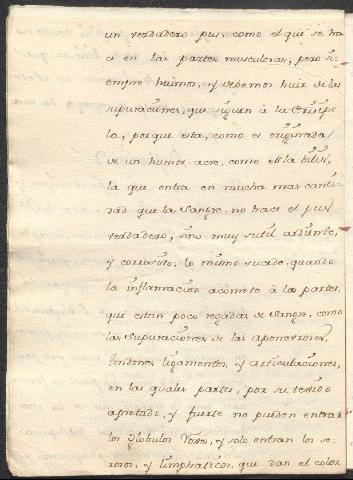 un verdadero pus, como el que se ha
ce en las partes musculosas, pero si
empre huimos, y debemos huir de las
supuraciones, que siguen à la Erisipe
la, porque esta, como es originada
de un humor acre, como es la bilis,
la que entra en mucha mas canti
dad que la Sangre, no hace el pus
verdadero, sino muy sutil ardiente,
y corrosivo: lo mismo sucede, quando
la inflamacion acomete à las partes,
que estan poco regadas de Sangre, como
las Supuraciones de las aponeurosis,
tendones, ligamentos, y articulaciones,
en las quales partes, por su texido
apretado, y fuerte no pueden entrar
los globulos roxos, y solo entran los se-
rosos, y limphaticos, que dan el color